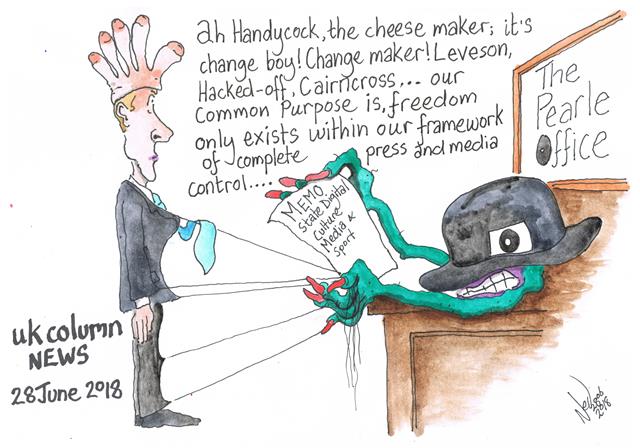 ah Handycock, the cheese maker; it's
change boy! Change maker! Leveson,
Hacked-off, Cairncross,... our
Common Purpose is, freedom
only exists within our framework
of complete press and media
control....
The
Pearle
Office
MEMO.
State Digital
Culture
Media &
Sport
uk column
NEWS
28 June 2018
2018